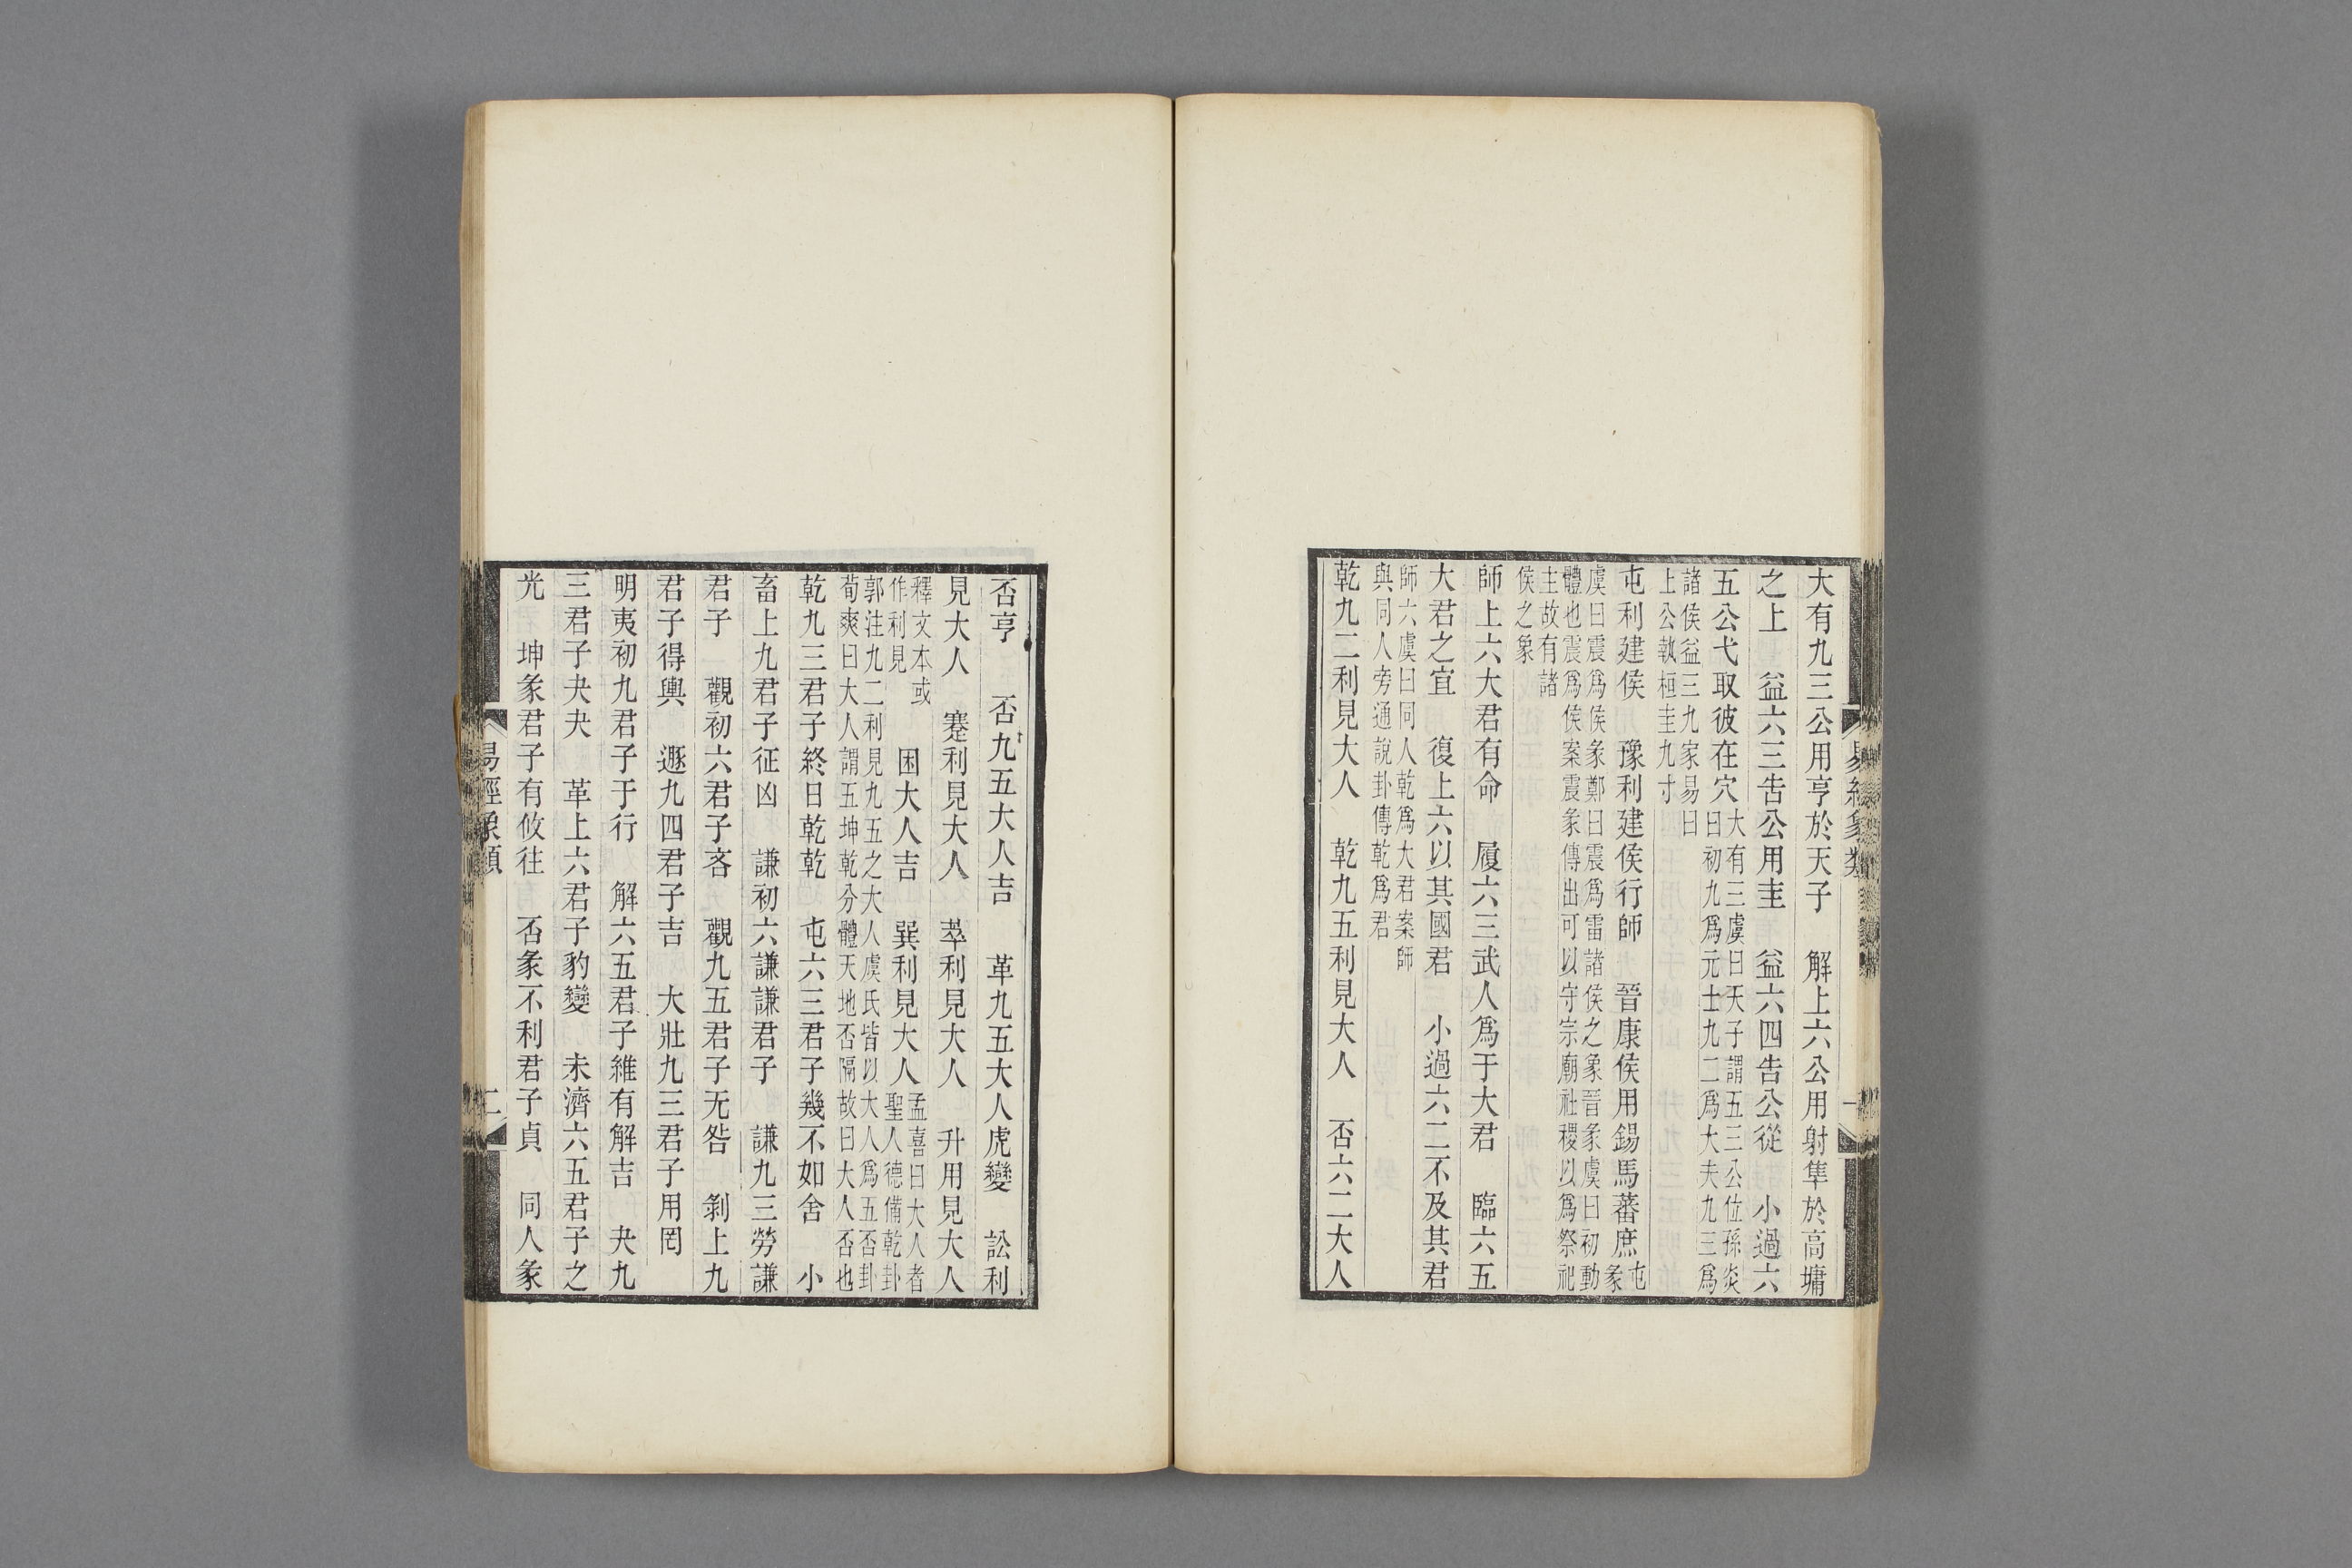 大有九三公用亨於天子　解上六公用射隼於高墉
之上　益六三告公用圭　益六四告公從　小過六
五公弋取彼在穴大有三虞曰天子謂五三公位孫炎
曰初九爲元士九二爲大夫九三爲
諸侯益三九家易曰
上公執桓圭九寸
屯利建侯　豫利建侯行師　晉康侯用錫馬蕃庶屯
彖
虞曰震爲侯彖鄭曰震爲雷諸侯之象晉彖虞曰初動
體也震爲侯案震彖傳出可以守宗廟社稷以爲祭祀
主故有諸
侯之象
師上六大君有命　履六三武人爲于大君　臨六五
大君之宜　復上六以其國君　小過六二不及其君
師六虞曰同人乾爲大君案師
與同人旁通說卦傳乾爲君
乾九二利見大人　乾九五利見大人　否六二大人
易經象類
一
否亨　否九五大人吉　革九五大人虎變　訟利
見大人　蹇利見大人　萃利見大人　升用見大人
釋文本或
作利見　困大人吉　巽利見大人孟喜曰大人者
聖人德備乾卦
郭注九二利見九五之大人虞氏皆以大人爲五否卦
荀爽曰大人謂五坤乾分體天地否隔故曰大人否也
乾九三君子終日乾乾　屯六三君子幾不如舍　小
畜上九君子征凶　謙初六謙謙君子　謙九三勞謙
君子　觀初六君子吝　觀九五君子无咎　剝上九
君子得輿　遯九四君子吉　大壯九三君子用罔
明夷初九君子于行　解六五君子維有解吉　夬九
三君子夬夬　革上六君子豹變　未濟六五君子之
光　坤彖君子有攸往　否彖不利君子貞　同人彖
易經象類
二